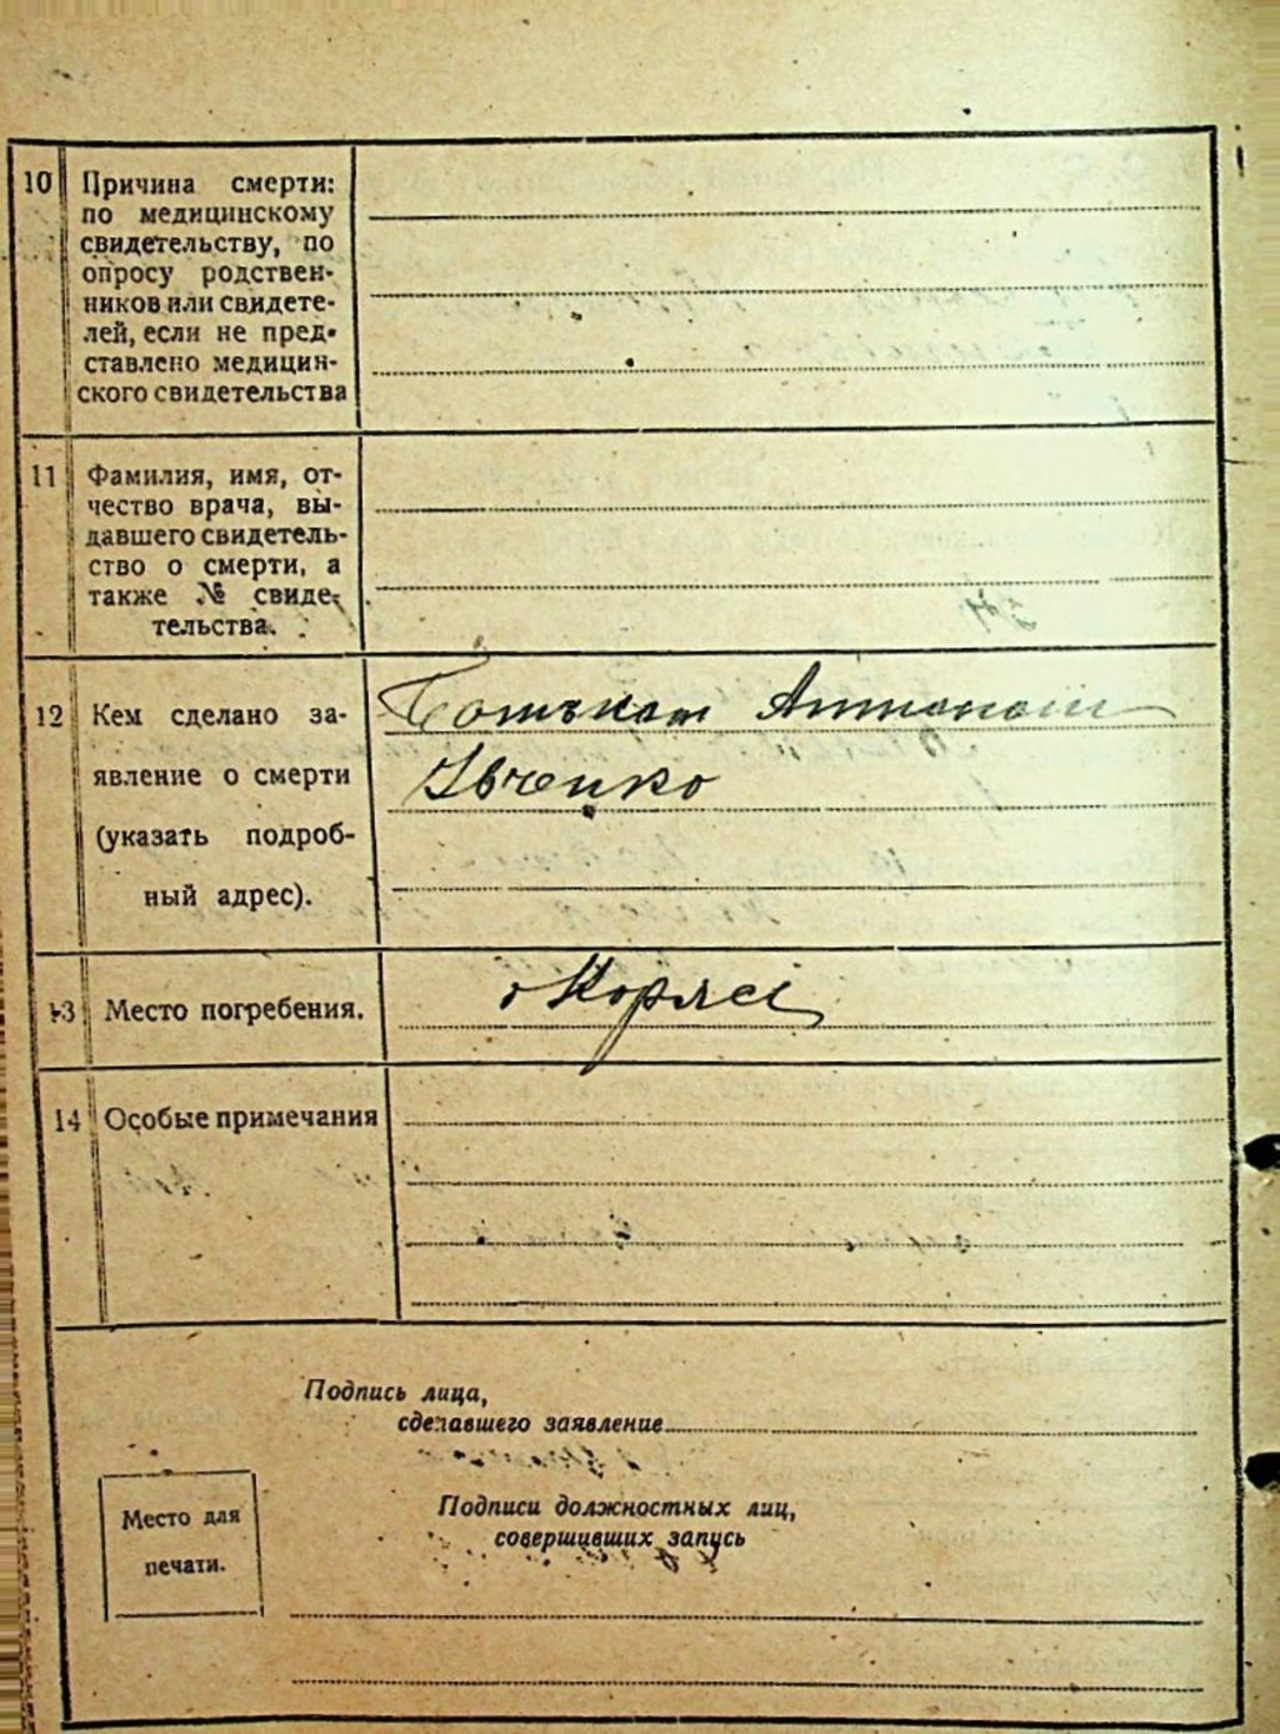 10 Причина смерти:
по медицинскому
свидетельству, по
опросу родствен-
ников или свидете-
лей, если не пред-
ставлено медицин-
ского свидетельства
11 Фамилия, имя, от-
чество врача, вы-
давшего свидетель-
ство о смерти, а
также № свиде-
тельства.
12 Кем сделано за-
явление о смерти
(указать подроб-
ный адрес).
Батьком Антоном
Івченко
13 Место погребения.
14 Особые примечания
Подпись лица,
сделавшего заявление
Место для
печати.
Подписи должностных лиц,
совершивших запись